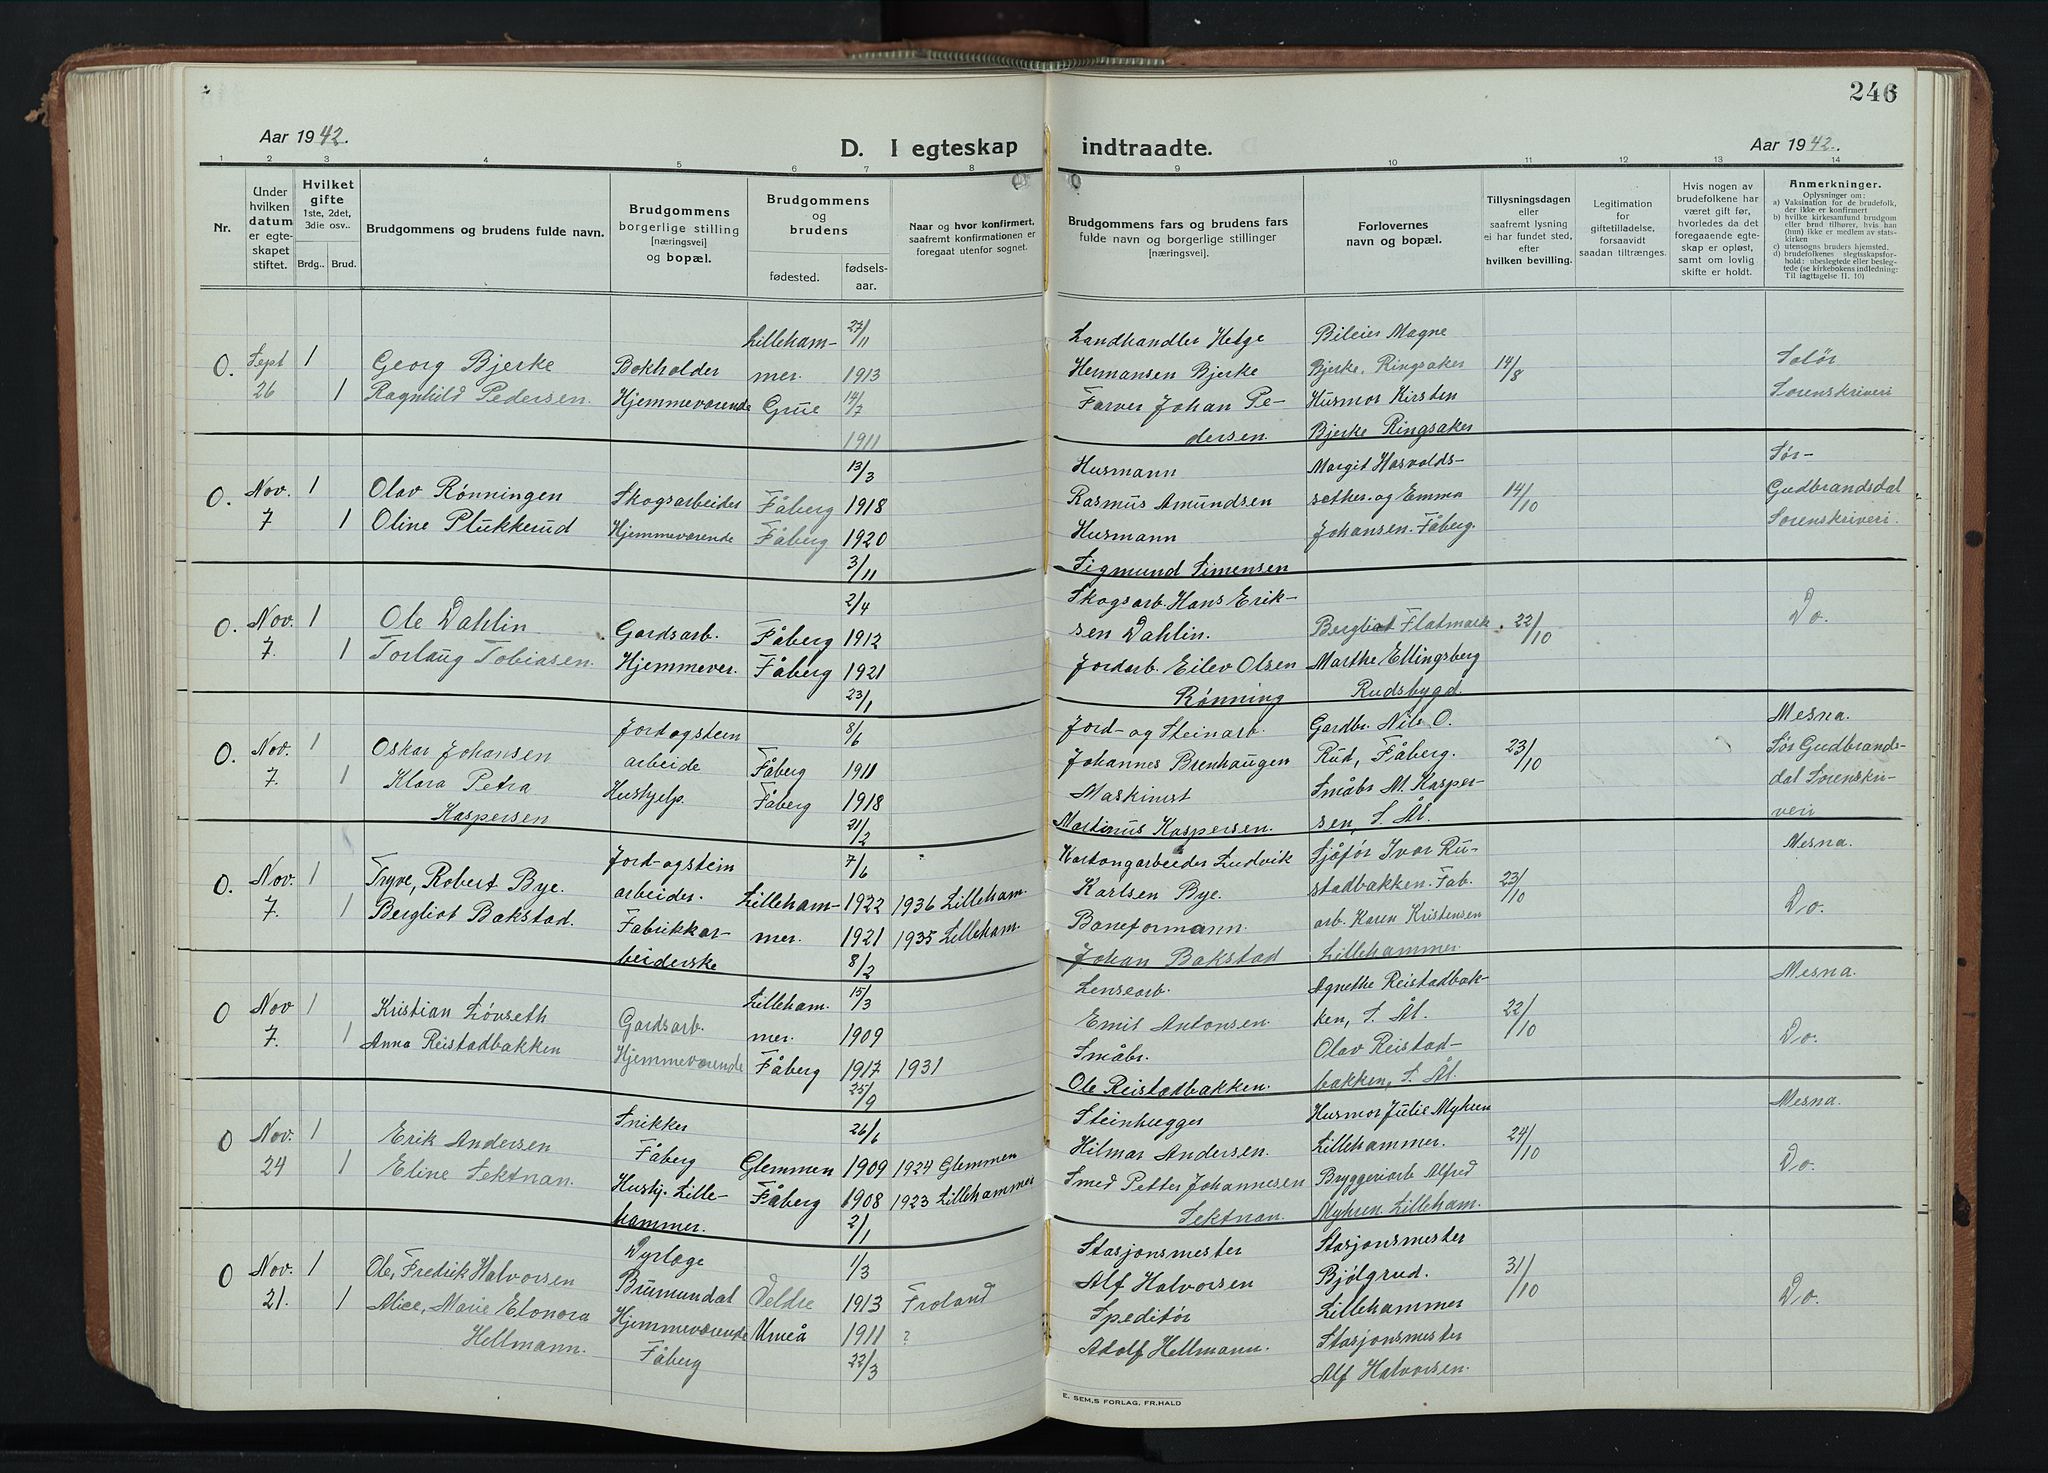 246
Aar 1942.
D. I egteskap indtraadte.
Aar 1942.
1 2 3 4 5 6 7 8 9 10 11 12 13 14
Nr.
Under hvilken datum er egteskapet stiftet.
Hvilket gifte 1ste, 2det, 3die osv..
Brdg.. Brud.
Brudgommens og brudens fulde navn.
Brudgommens borgerlige stilling [næringsvei] og bopæl.
Brudgommens og brudens
fødested.
fødselsaar.
Naar og hvor konfirmert, saafremt konfirmationen er foregaat utenfor sognet.
Brudgommens fars og brudens fars fulde navn og borgerlige stillinger [næringsvei].
Forlovernes navn og bopæl.
Tillysningsdagen eller saafremt lysning ei har fundet sted, efter hvilken bevilling.
Legitimation for giftetilladelse, forsaavidt saadan tiltrænges.
Hvis nogen av brudefolkene har været gift før, hvorledes da det foregaaende egteskap er opløst, samt om lovlig skifte er holdt.
Anmerkninger.
Oplysninger om:
a) Vaksination for de brudefolk, der ikke er konfirmert
b) hvilke kirkesamfund brudgom eller brud tilhører, hvis han (hun) ikke er medlem av statskirken
c) utensogns bruders hjemsted.
d) brudefolkenes slegtsskapsforhold: ubeslegtede eller beslegtede (se kirkebokens indledning: Til iagttagelse II. 10)
Lilleham- 27/11 Landhandler Helge Bileier Magne
O. Sept 1 Georg Bjerke Bokholder mer. 1913 Hermansen Bjerke Bjerke, Ringsaker 14/8 Solør
26 1 Ragnhild Pedersen. Hjemmeværende Grue 14/7 Farver Johan Pe- Husmor Kirsten Sorenskriveri
1911 dersen. Bjerke Ringsaker
13/3 Husmann Margit Hasvolds- Sør-
O. Nov. 1 Olav Rønningen Skogsarbeider Fåberg 1918 Rasmus Amundsen sether. og Emma 14/10 Gudbrandsdal
7 1 Oline Plukkerud Hjemmeværende Fåberg 1920 Husmann Johansen. Fåberg. Sorenskriveri.
3/11 Sigmund Simensen
2/4 Skogsarb. Hans Erik-
O. Nov. 1 Ole Dahlin Gardsarb. Fåberg 1912 sen Dahlin. Bergliot Flatmark. 22/10 Do.
7. 1 Torlaug Tobiasen. Hjemmever. Fåberg 1921 Jordarb. Eilev Olsen Marthe Ellingsberg
23/1 Rønning Rudsbygd.
Jord og stein 8/6 Jord- og Steinarb. Gardbr. Nils O. Mesna.
O. Nov. 1 Oskar Johansen arbeide Fåberg 1911 Johannes Brenhaugen Rud, Fåberg. 23/10 Sør Gudbrands-
7. 1 Klara Petra Hushjelp. Fåberg 1918 Maskinist Småbr M. Kasper- dal Sorenskri-
Kaspersen 21/2 Martinus Kaspersen. sen, S. Ål. veri
Jord- og stein 7/6 Kartongarbeider Ludvik Sjåfør Ivar Ru- Mesna.
O. Nov. 1 Tryve, Robert Bye. arbeider. Lilleham- 1922 1936 Lilleham. Karlsen Bye. stadbakken. Fab. 23/10
7. 1 Bergliot Bakstad. Fabrikkar- mer. 1921 1935 Lilleham. Baneformann. arb. Karen Kristensen Do.
beiderske 8/2 Johan Bakstad Lillehammer.
Lilleham. 15/3 Lensearb. Agnethe Reistadbak- Mesna.
O Nov 1 Kristian Lønseth Gardsarb. mer. 1909 Emil Antonsen. ken, S. Ål. 22/10
7. 1 Anna Reistadbakken Hjemmeværende Fåberg 1917 1931 Småbr. Olav Reistad- Do.
25/9 Ole Reistadbakken. bakken, S. Ål.
Snikker 26/6 Steinhugger Husmor Julie Myhren Mesna.
O Nov. 1 Erik Andersen Fåberg Glemmen 1909 1924 Glemmen Hilmar Andersen. Lillehammer. 24/10
24 1 Eline Sektnan. Hushj. Lille- Fåberg 1908 1923 Lillehammer Smed Petter Johannesen Bryggeriarb Alfred Do.
hammer. 2/1 Sektnan. Myhren. Lilleham.
Dyrlæge 1/3 Stasjonsmester Stasjonsmester
O Nov. 1 Ole, Fredrik Halvorsen Brumundal Veldre 1913 Froland Alf Halvorsen Bjølgrud. 31/10
21. 1 Alice, Marie Elonora Hjemmeværende Umeå 1911 ? Speditør Lillehammer Do.
Hellmann. Fåberg 22/3 Adolf Hellmann. Stasjonsmester
Alf Halvorsen.
E. SEM,S FORLAG, FR.HALD